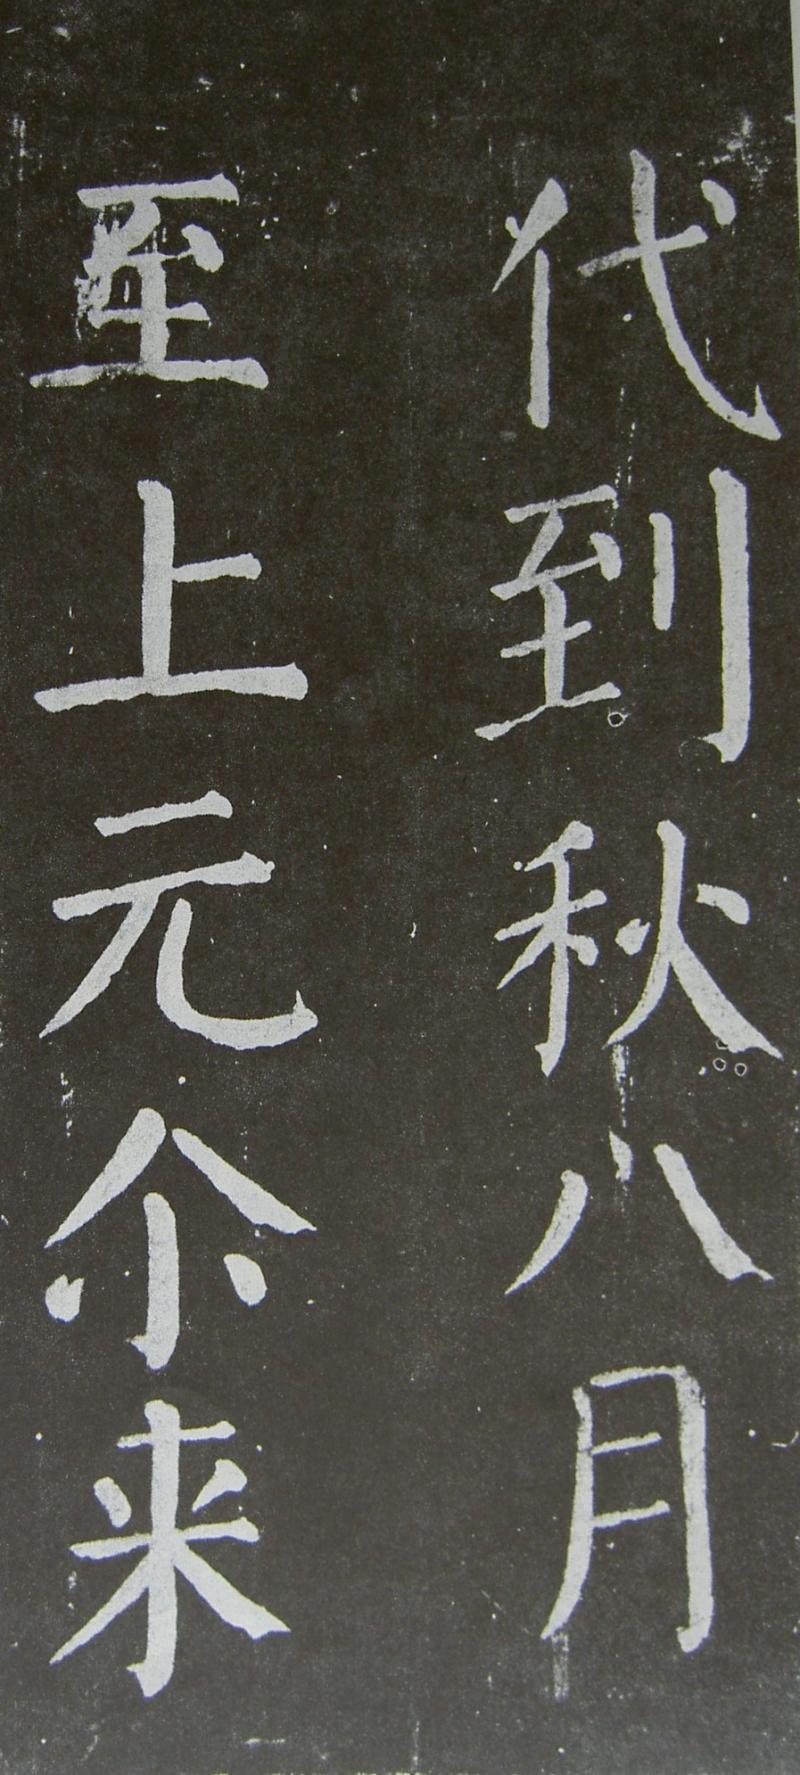 代到秋八月
至上元尒来